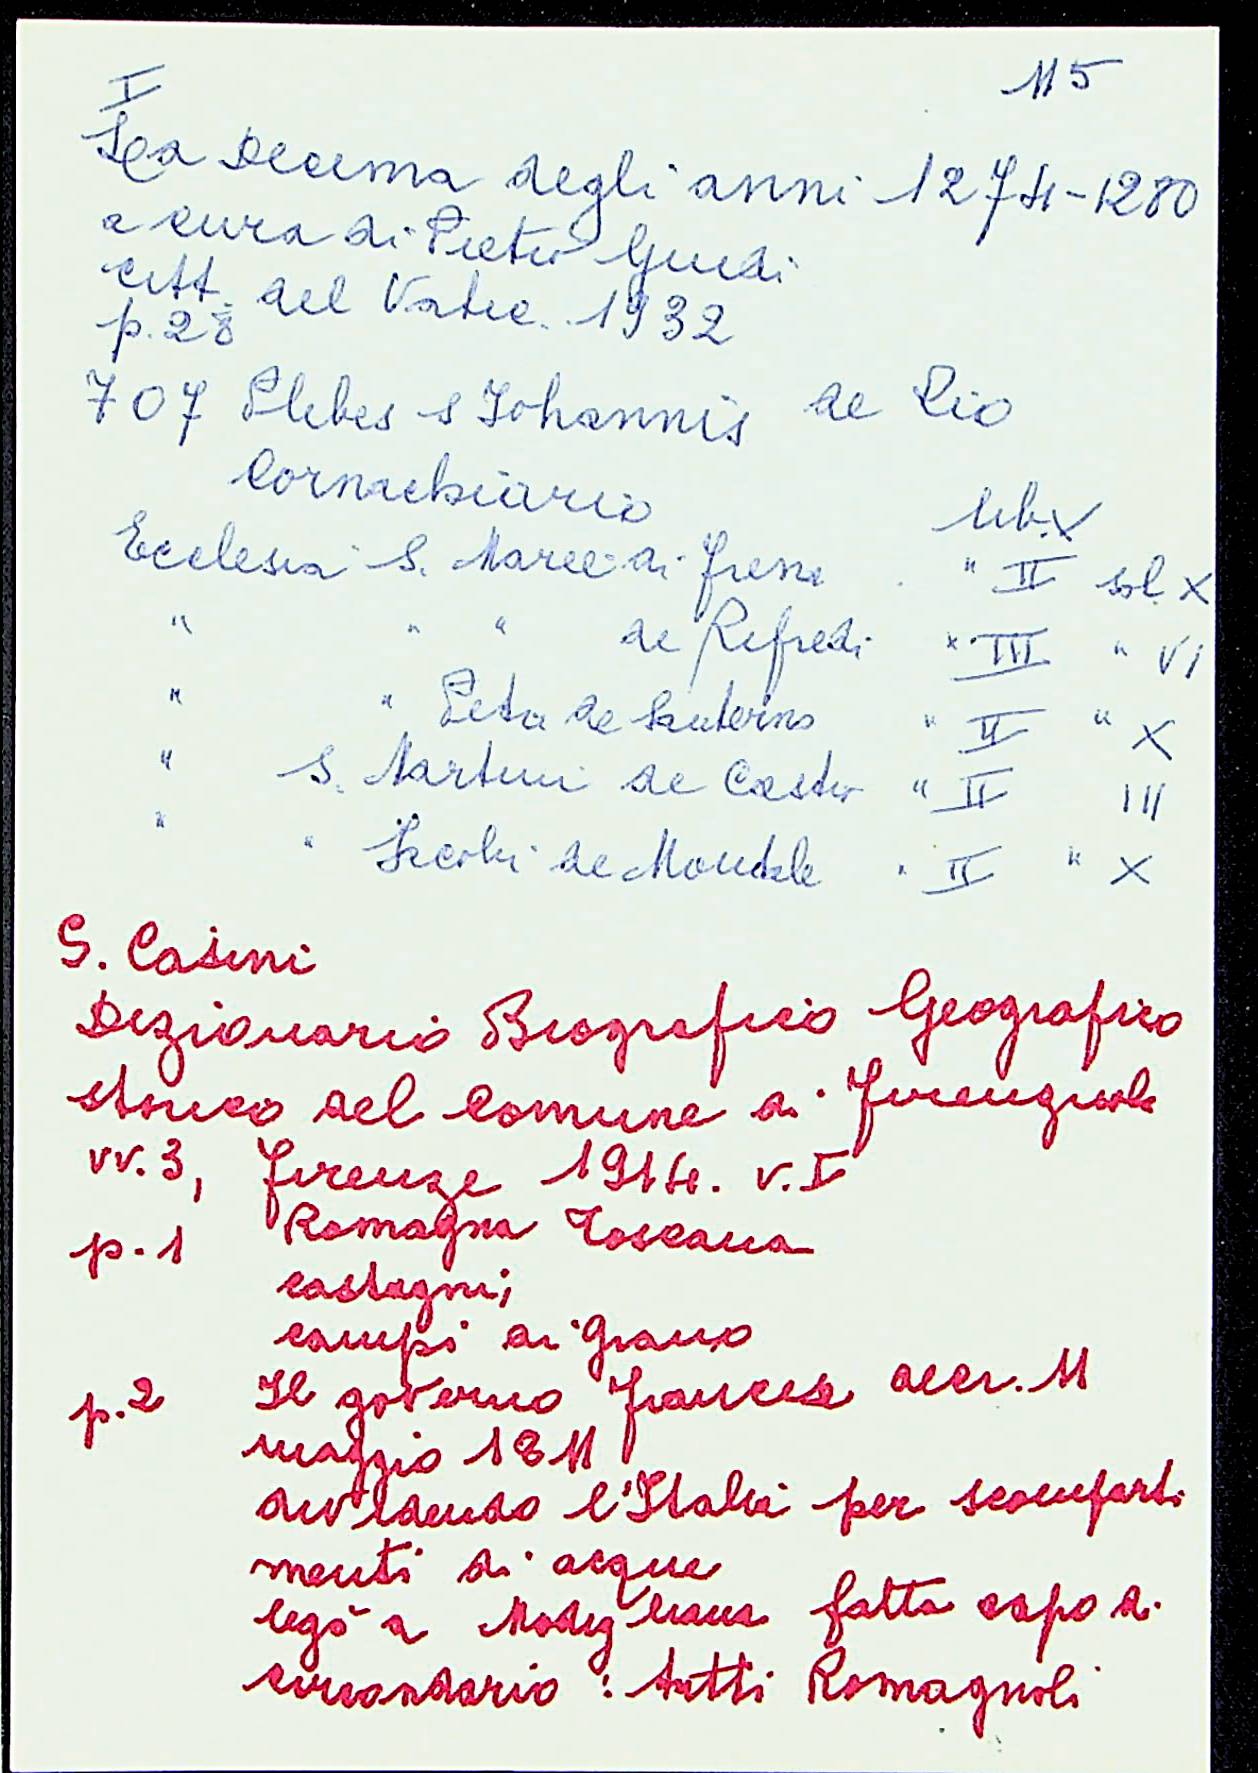 I
115
La Decima degli anni 1274-1280
a cura di Pietro Guidi
citt. del Vatic. 1932
p. 28
707 Plebes s Johannis de Rio
Cornachiario lib. X
Ecclesia S. Marie di Frena " II sol. X
" " " de Refredi " III " VI
" " Petri de Santerno " II " X
" S. Martini de Castro " II III
" " Jacobi de Montale " II " X
S. Casini
Dizionario Biografico Geografico
storico del Comune di Firenzuola
vv. 3, Firenze 1914. v. I
p. 1 Romagna Toscana
castagni;
campi di grano
p. 2 Il governo francese decr. 11
maggio 1811
dividendo l'Italia per scomparti
menti di acque
legò a Modigliana fatta capo di
circondario: tutti Romagnoli